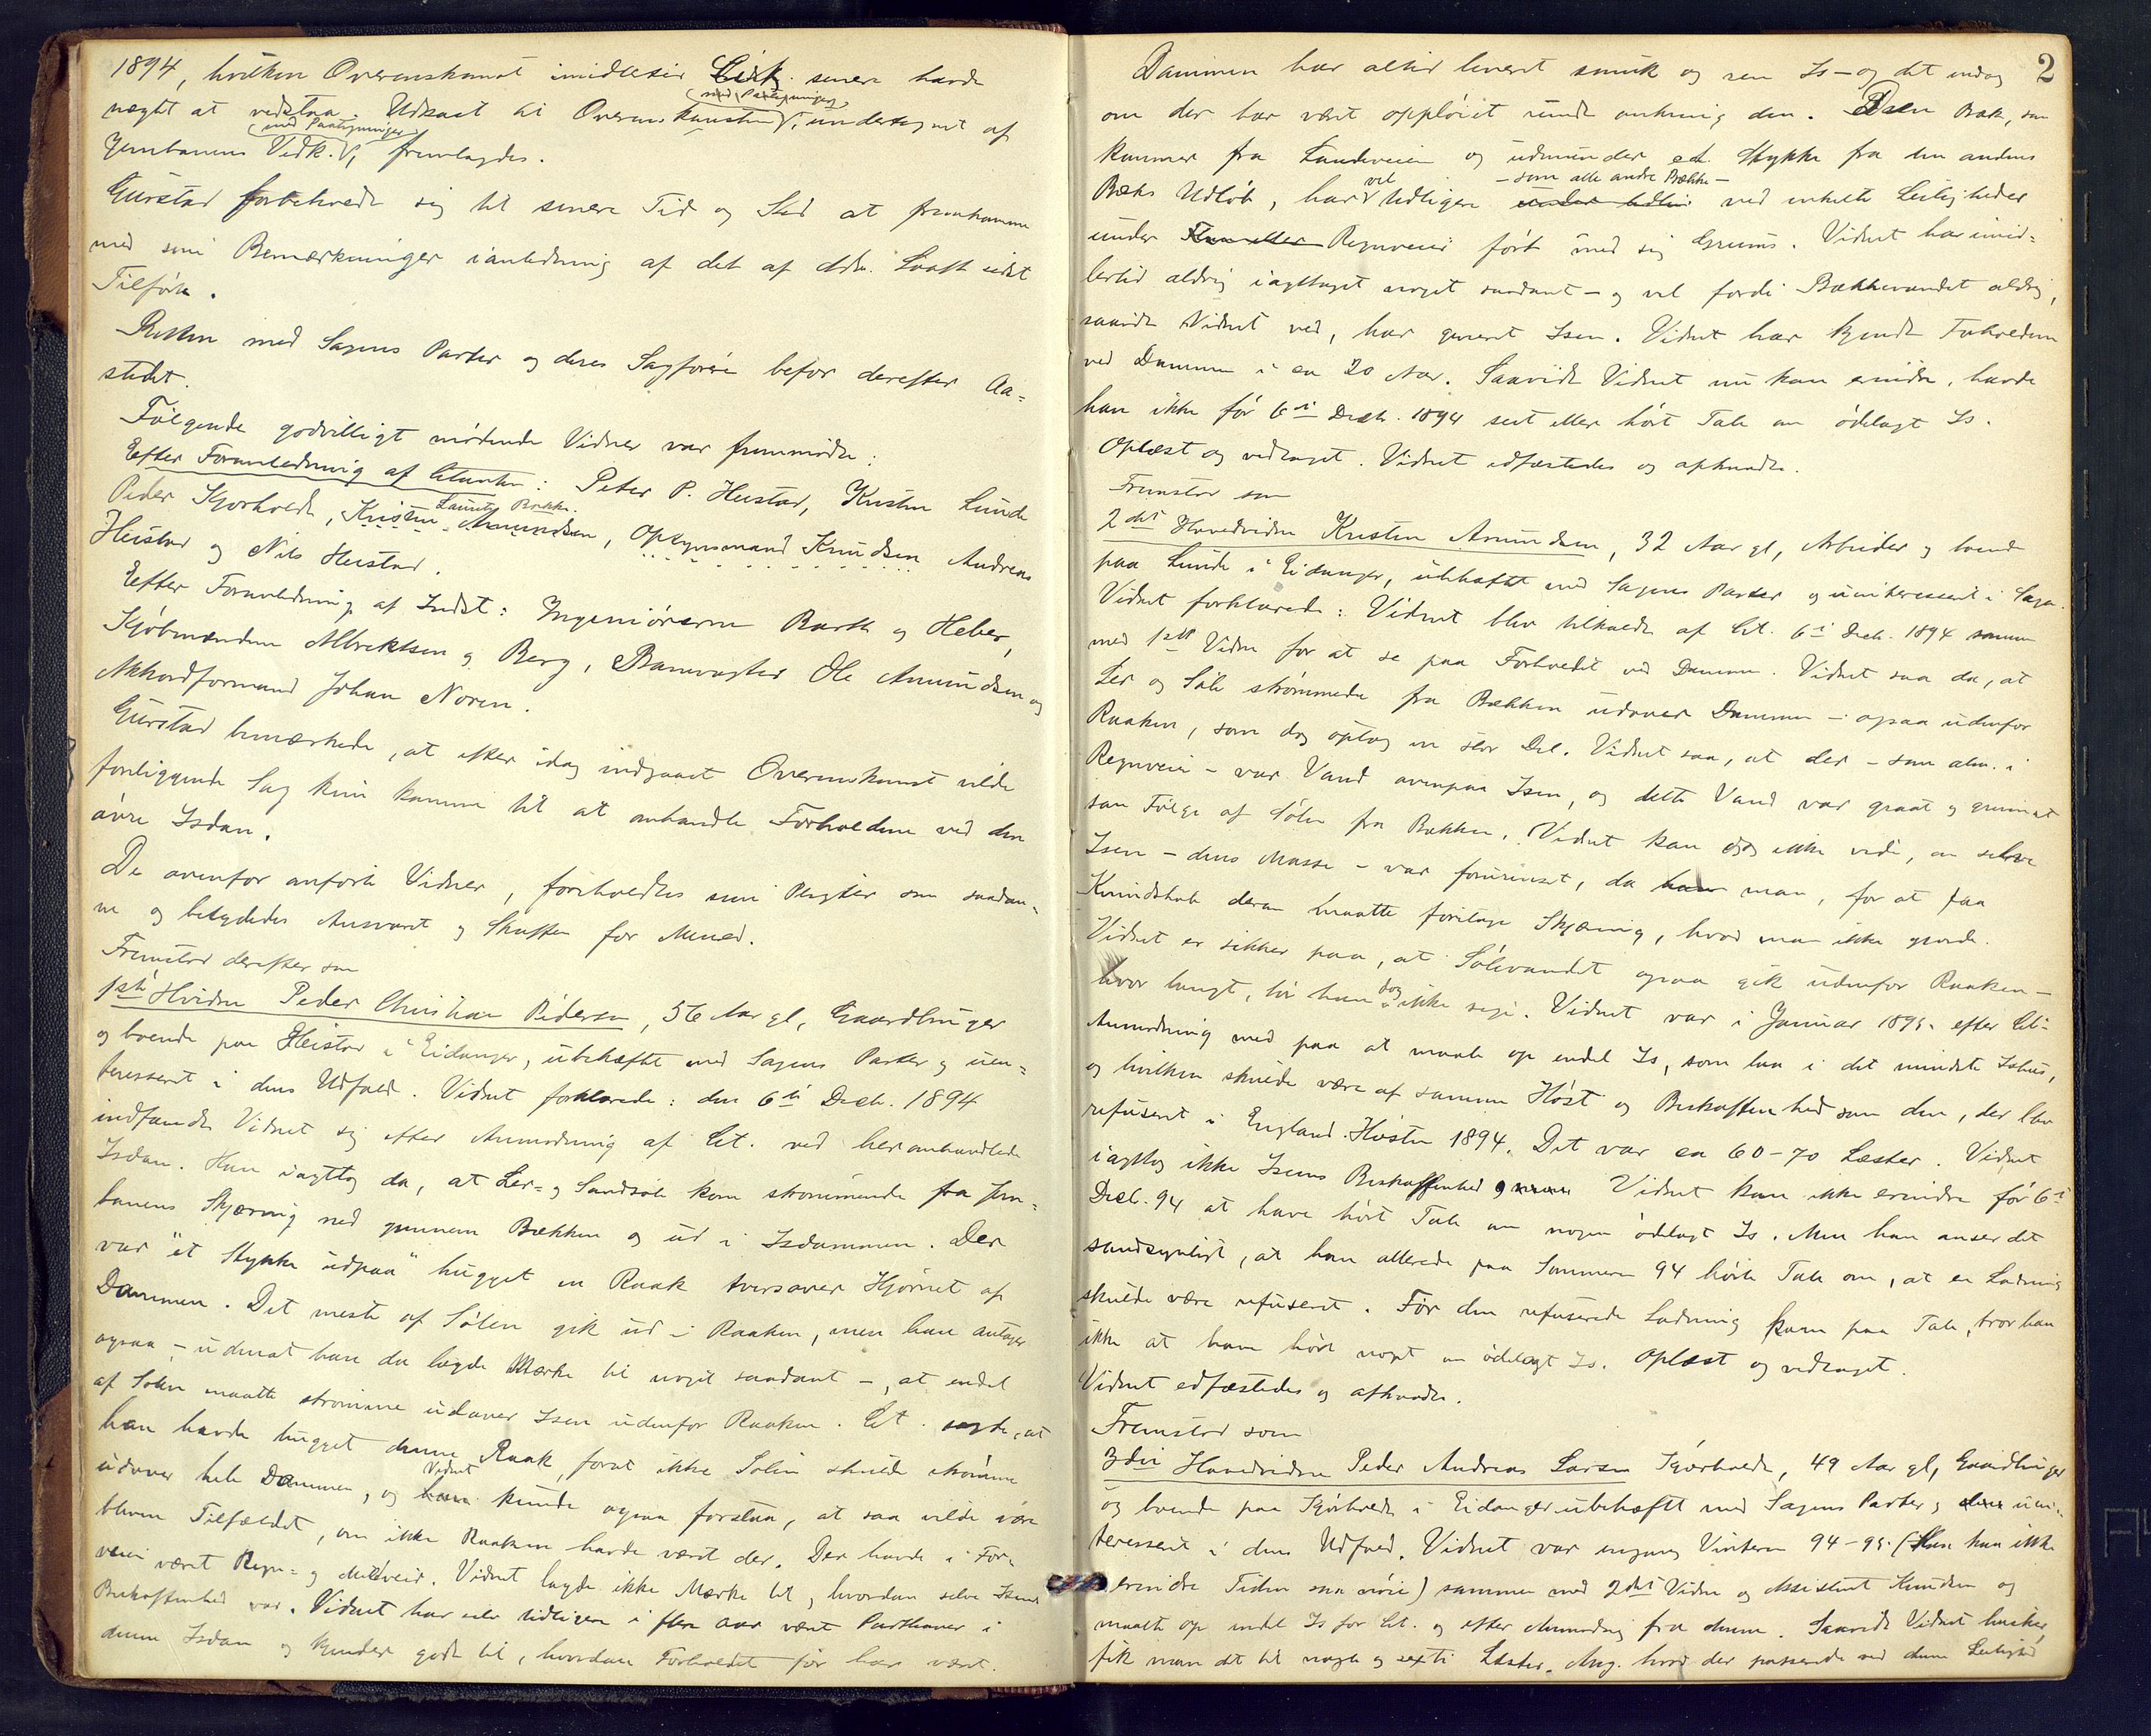 1894, hvilken Overenskomst imidlertid Cit. senere havde
nægtet at vedstaa. Udkast til Overenskomsten (med Paategninger), undertegnet af
Jernbanens Vedk. (med Paategninger), fremlagdes.
Gurstad forbeholdt sig til senere Tid og Sted at fremkomme
med sine Bemærkninger i anledning af det af Adv. Laath sidst
Tilførte.
Retten med Sagens Parter og deres Sagfører befor derefter Aa=
stedet.
Følgende godvilligt mødende Vidner var fremmødte:
Efter Foranledning af Citanten: Peter P. Heistad, Kristen Lunde
Peder Kjørholdt, Kristen Amundsen, Laurits Bakke. Opsynsmand Knudsen Andreas
Heistad og Nils Heistad.
Efter Foranledning af Indst: Ingeniørerne Barth og Heber,
Kjøbmændene Albrektsen og Berg, Banevogter Ole Amundsen og
Akkordformand Johan Noren.
Gurstad bemærkede, at efter idag indgaaet Overenskomst vilde
foreliggende Sag kun komme til at omhandle Forholdene ved den
øvre Isdam.
De ovenfor anførte Vidner, foreholdtes sine Pligter som saadan=
ne og betydedes Ansvaret og Straffen for Mened.
Fremstod derefter som
1ste Hvidne Peder Christian Pedersen, 56 Aar gl, Gaardbruger
og boende paa Heistad i Eidanger, ubehæftet med Sagens Parter og uin=
teresseret i dens Udfald. Vidnet forklarede: den 6te Decb. 1894
indfandt Vidnet sig efter Anmodning af Cit. ved heromhandlede
Isdam. Han iagttog da, at Ler= og Sandsøle kom strømmende fra Jern=
banens Skjæring ned gjennem Bækken og ud i Isdammen. Der
var "et Stykke udpaa" hugget en Raak tversover Hjørnet af
Dammen. Det meste af Sølen gik ud i Raaken, men han antager
ogsaa – udenat han da lagde Mærke til noget saadant –, at endel
af Sølen maatte strømme udover Isen udenfor Raaken. Cit. sagde, at
han havde hugget denne Raak, forat ikke Sølen skulde strømme
udover hele Dammen, og Vidnet kunde ogsaa forstaa, at saa vilde være
bleven Tilfældet, om ikke Raaken havde været der. Der havde i For=
veien været Regn= og Mildveir. Vidnet lagde ikke Mærke til, hvordan selve Isens
Beskaffenhed var. Vidnet har selv tidligere i flere Aar været Parthaver i
denne Isdam og kjender godt til, hvordan Forholdet før har været.
2
Dammen har altid leveret smuk og ren Is – og det endog
om der har været oppløiet rundt omkring den. Den Bæk, som
kommer fra Landeveien og udmunder et Stykke fra den andens
Bæks Udløb, har vel tidligere – som alle andre Bække – ved enkelte Leiligheder
under Regnveir ført med sig Grums. Vidnet har imid=
lertid aldrig iagttaget noget saadant – og vel fordi Bækkevandet aldrig,
saavidt Vidnet ved, har generet Isen. Vidnet har kjendt Forholdene
ved Dammen i ca 20 Aar. Saavidt Vidnet nu kan erindre, havde
han ikke før 6te Decb. 1894 seet eller hørt Tale om ødelagt Is.
Oplæst og vedtaget. Vidnet edfæstedes og aftraadte.
Fremstod som
2det Hovedvidne Kristen Amundsen, 32 Aar gl, Arbeider og boende
paa Lunde i Eidanger, ubehæftet med Sagens Parter og uinteresseret i Sagen.
Vidnet forklarede: Vidnet blev tilkaldt af Cit. 6te Decb. 1894 sammen
med 1ste Vidne for at se paa Forholdet ved Dammen. Vidnet saa da, at
Ler og Søle strømmede fra Bækken udover Dammen – ogsaa udenfor
Raaken, som dog optog en stor Del. Vidnet saa, at der – som alm. i
Regnveir – var Vand ovenpaa Isen, og dette Vand var graat og grumset
som Følge af Sølen fra Bækken. Vidnet kan dog ikke vide, om selve
Isen – dens Masse – var forurenset, da man, for at faa
Kundskab derom maatte foretage Skjæring, hvad man ikke gjorde.
Vidnet er sikker paa, at Sølevandet ogsaa gik udenfor Raaken –
hvor langt, tør han dog ikke sige. Vidnet var i Januar 1895 efter Cit=
Anmodning med paa at maale op endel Is, som laa i det mindste Ishus,
og hvilken skulde være af samme Høst og Beskaffenhed som den, der blev
refuseret i England Høsten 1894. Det var ca 60–70 Læster. Vidnet
iagttog ikke Isens Beskaffenhed Vidnet kan ikke erindre før 6te
Decb. 94 at have hørt Tale om nogen ødelagt Is. Men han anser det
sandsynligt, at han allerede paa Sommeren 94 hørte Tale om, at en Ladning
skulde være refuseret. Før den refuserede Ladning kom paa Tale, tror han
ikke at have hørt noget om ødelagt Is. Oplæst og vedtaget.
Vidnet edfæstedes og aftraadte.
Fremstod som
3die Hovedvidne Peder Andreas Larsen Kjørholdt, 49 Aar gl, Gaardbruger
og boende paa Kjørholdt i Eidanger ubehæftet med Sagens Parter og uin=
teresseret i dens Udfald. Vidnet var engang Vinteren 94–95 (Han kan ikke
erindre Tiden saa nøie) sammen med 2det Vidne og Assistent Knudsen og
maalte op endel Is for Cit. og efter Anmodning fra denne. Saavidt Vidnet husker,
fik man det til nogle og sexti Læster. Ang. hvad der passerede ved denne Leilighed